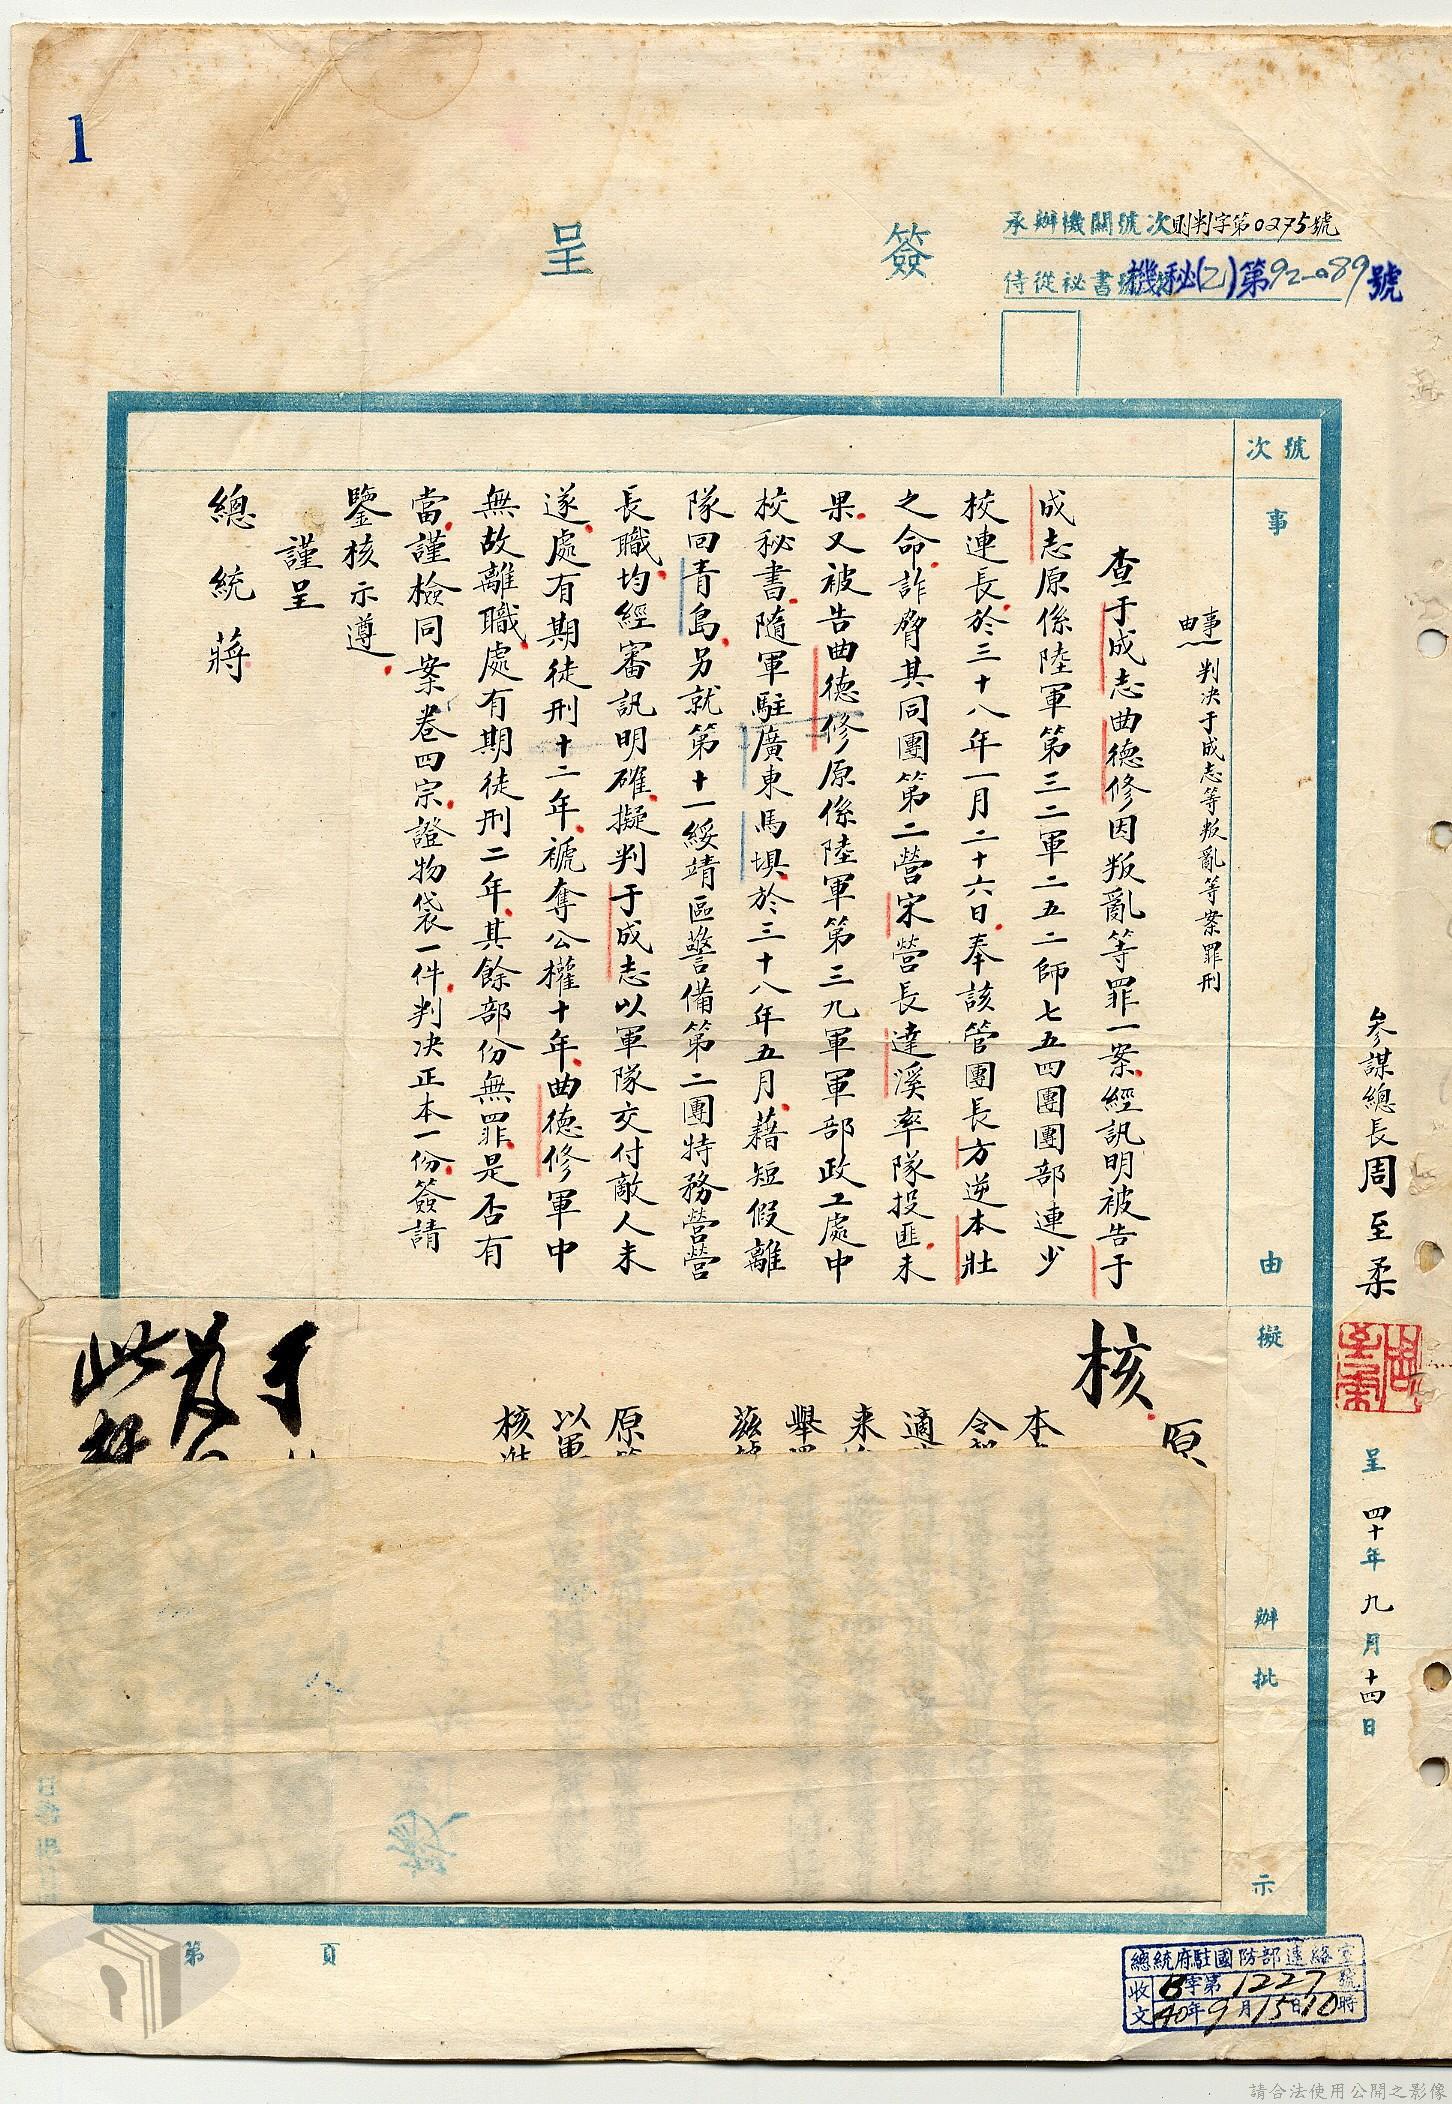 1
簽呈
承辦機關號次則判字第0275號
侍從祕書
機秘(乙)第92-089號
參謀總長周至柔
呈 四十年九月十四日
號次
事由
擬辦
批示
事由一判决于成志等叛亂等案罪刑
查于成志曲德修因叛亂等罪一案經訊明被告于
成志原係陸軍第三二軍二五二師七五四團團部連少
校連長於三十八年一月二十六日奉該管團長方逆本壯
之命詐脅其同團第二營宋營長達溪率隊投匪未
果又被告曲德修原係陸軍第三九軍軍部政工處中
校秘書隨軍駐廣東馬壩於三十八年五月藉短假離
隊回青島另就第十一綏靖區警備第二團特務營營
長職均經審訊明確擬判于成志以軍隊交付敵人未
遂處有期徒刑十二年褫奪公權十年曲德修軍中
無故離職處有期徒刑二年其餘部份無罪是否有
當謹檢同案卷四宗證物袋一件判决正本一份簽請
鑒核示遵
謹呈
總統蔣
核
原
本
令
適
來
舉
茲
原
以軍
核
第 頁
總統府駐國防部連絡室
收文 B字第1227號
40年9月15日10時
請合法使用公開之影像